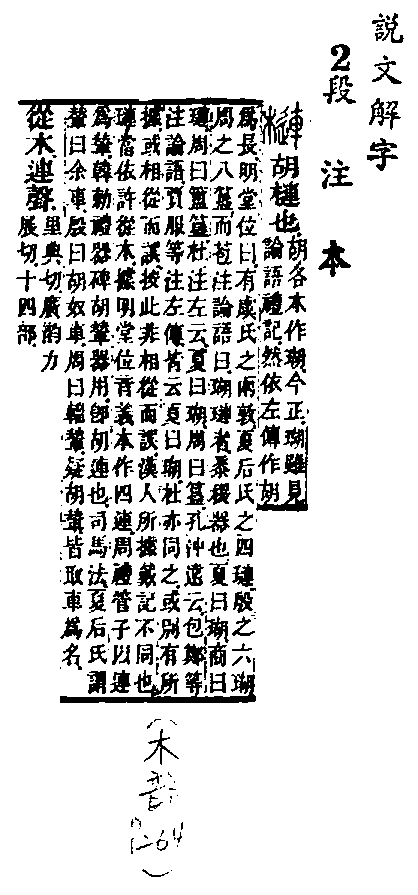 説文解字
2段注本
槤胡槤也胡各本作瑚今正瑚雖見
論語禮記然依左傳作胡
爲長明堂位曰有虞氏之兩敦夏后氏之四璉殷之六瑚
周之八簋而苞注論語曰瑚璉者黍稷器也夏曰瑚商曰
璉周曰簠簋杜注左云夏曰瑚周曰簋孔沖遠云包鄭等
注論語賈服等注左傳皆云夏曰瑚杜亦同之或別有所
據或相從而誤按此非相從而誤漢人所據戴記不同也
璉當依許從木據明堂位音義本作四連周禮管子以連
爲輦韓勑禮器碑胡輦器用卽胡連也司馬法夏后氏謂
輦曰余車殷曰胡奴車周曰輜輦疑胡輦皆取車爲名
從木連聲里典切廣韵力
展切十四部
(木部